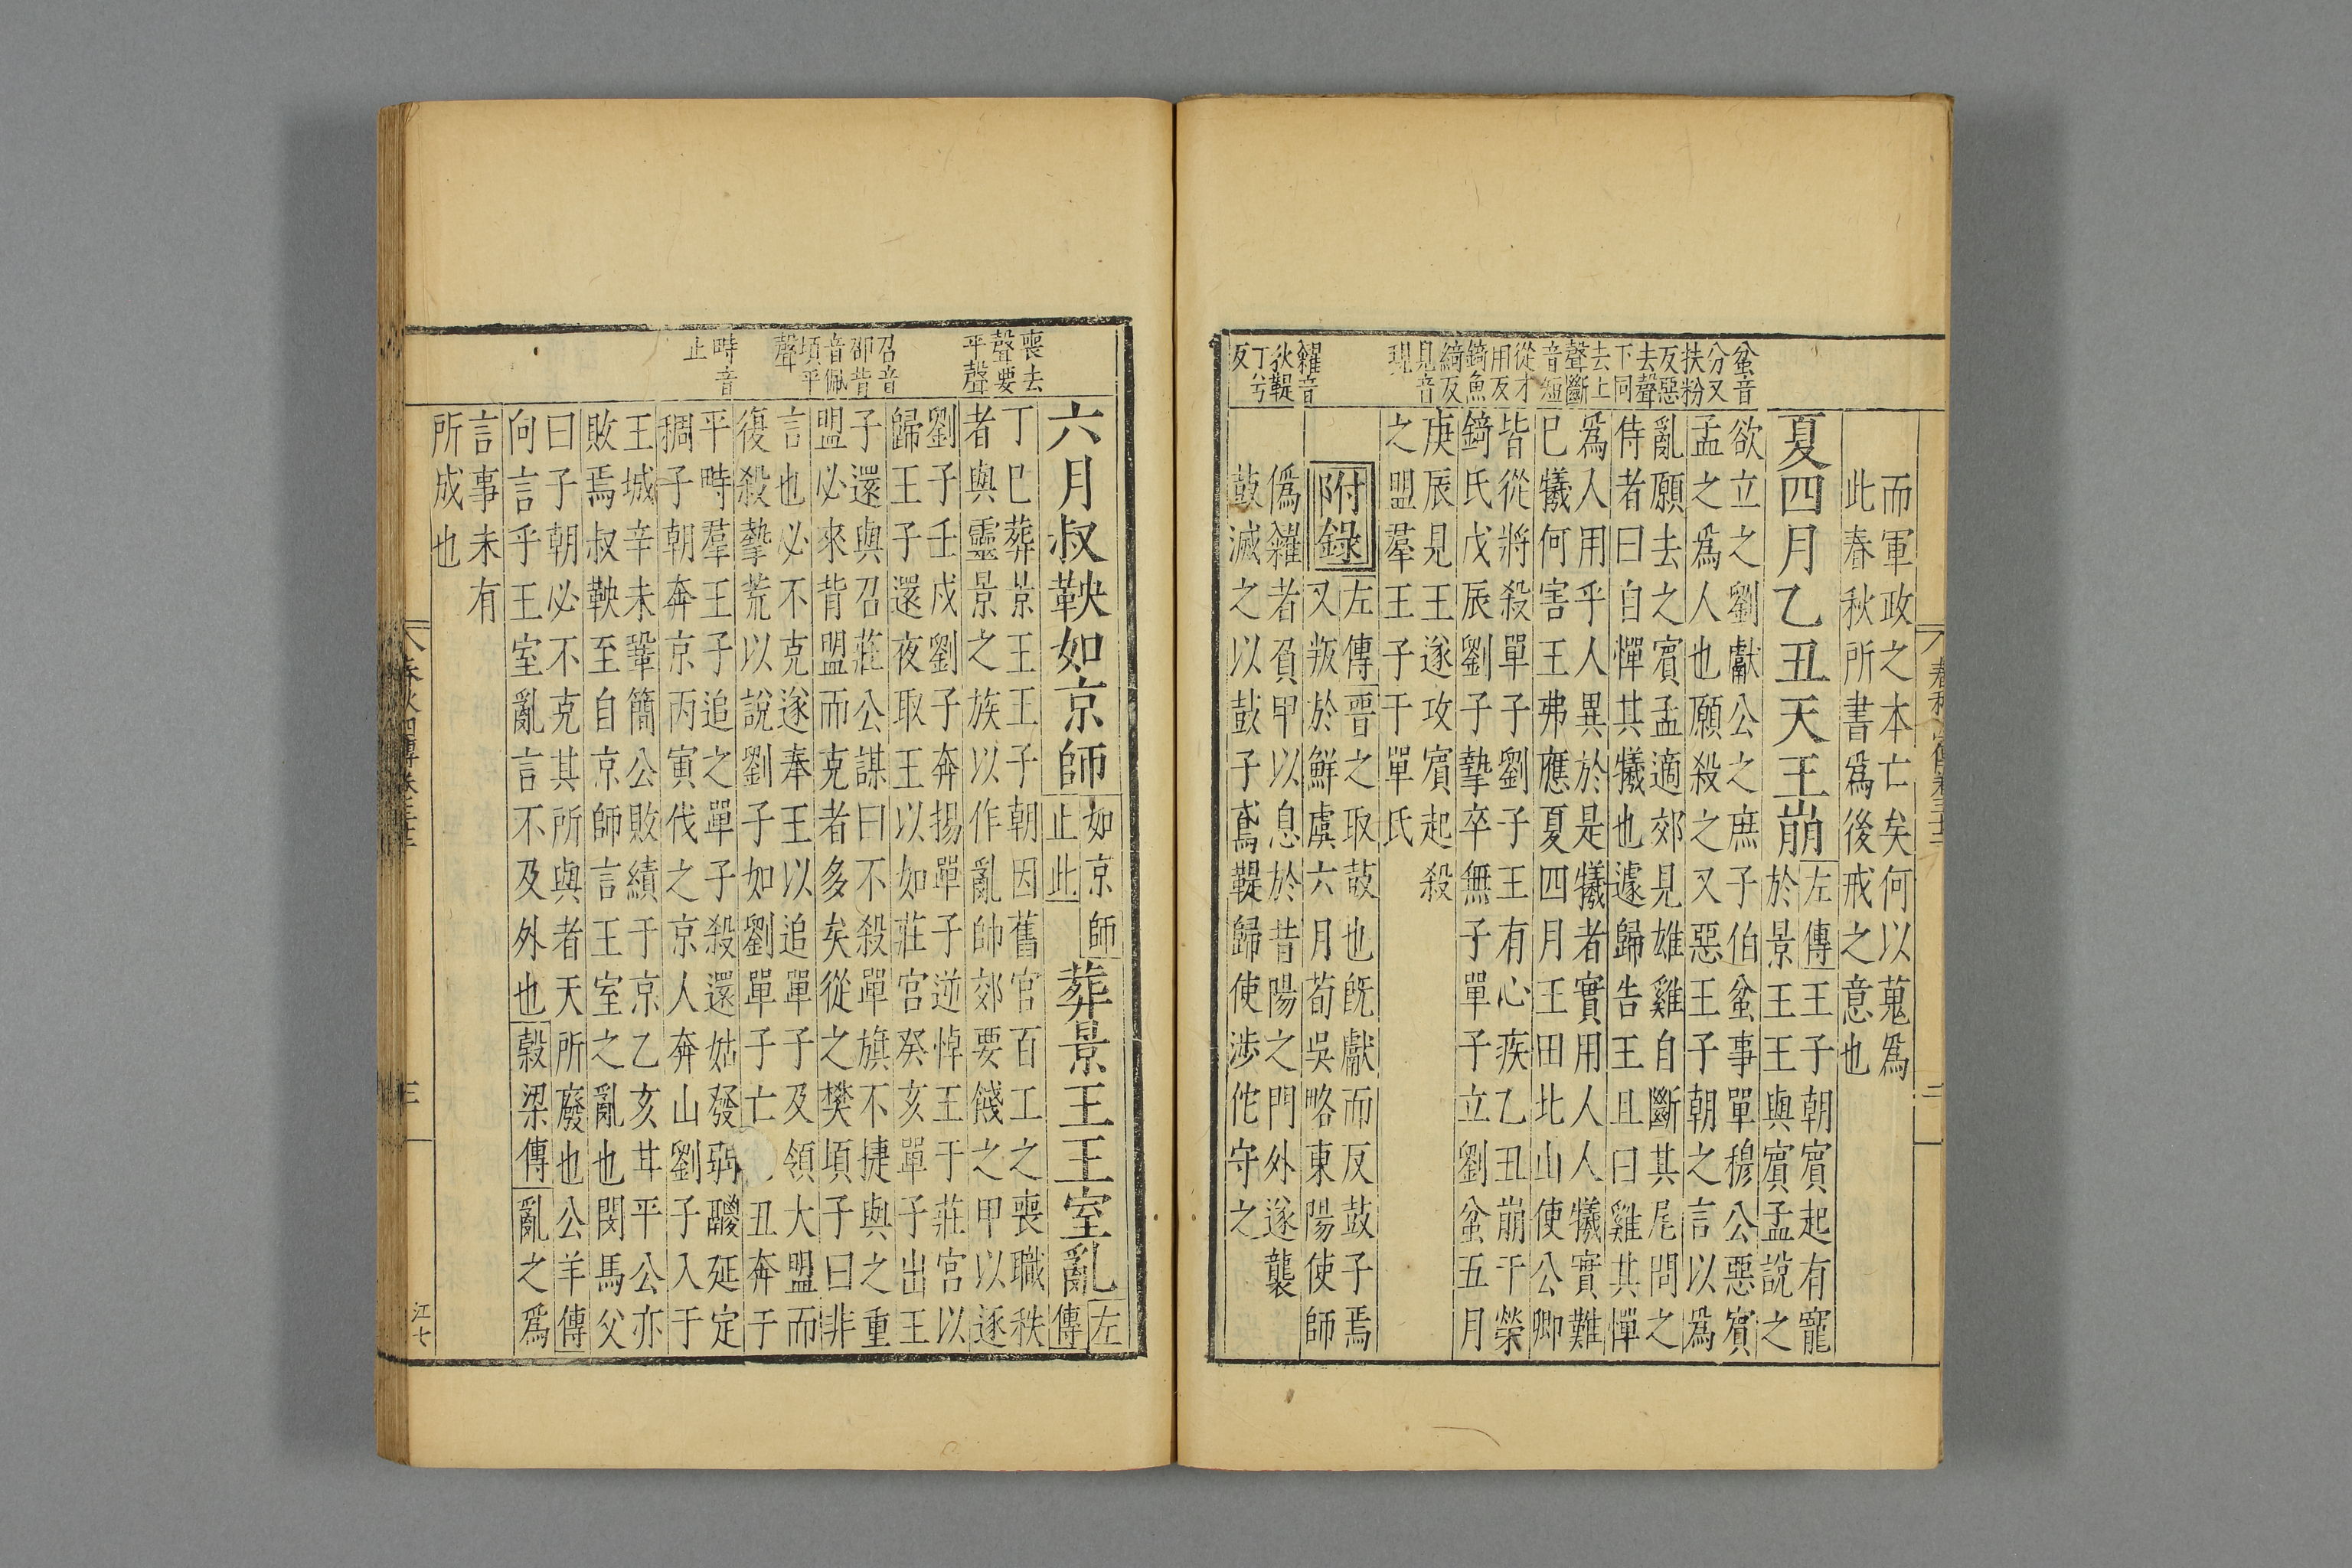 蚠音
分又
扶粉
反惡
去聲
下同
去上
聲斷
音短
從才
用反
錡魚
綺反
見音
現
糴音
狄鞮
丁兮
反
而軍政之本亡矣何以蒐爲
此春秋所書爲後戒之意也
夏四月乙丑天王崩
左傳王子朝賓起有寵
於景王王與賓孟說之
欲立之劉獻公之庶子伯蚠事單穆公惡賓
孟之爲人也願殺之又惡王子朝之言以爲
亂願去之賓孟適郊見雄雞自斷其尾問之
侍者曰自憚其犧也遽歸告王且曰雞其憚
爲人用乎人異於是犧者實用人人犧實難
已犧何害王弗應夏四月王田北山使公卿
皆從將殺單子劉子王有心疾乙丑崩于榮
錡氏戊辰劉子摯卒無子單子立劉蚠五月
庚辰見王遂攻賓起殺
之盟羣王子于單氏
附錄
左傳晉之取鼓也既獻而反鼓子焉
又叛於鮮虞六月荀吳略東陽使師
僞糴者負甲以息於昔陽之門外遂襲
鼓滅之以鼓子鳶鞮歸使涉佗守之
喪去
聲要
平聲
召音
卲背
音佩
頃平
聲
畤音
止
六月叔鞅如京師
如京師
止此
葬景王王室亂
左
傳
丁巳葬景王王子朝因舊官百工之喪職秩
者與靈景之族以作亂帥郊要餞之甲以逐
劉子壬戌劉子奔揚單子逆悼王于莊宮以
歸王子還夜取王以如莊宮癸亥單子出王
子還與召莊公謀曰不殺單旗不捷與之重
盟必來背盟而克者多矣從之樊頃子曰非
言也必不克遂奉王以追單子及領大盟而
復殺摯荒以說劉子如劉單子亡丑奔于
平畤羣王子追之單子殺還姑發弱鬷延定
稠子朝奔京丙寅伐之京人奔山劉子入于
王城辛未鞏簡公敗績于京乙亥甘平公亦
敗焉叔鞅至自京師言王室之亂也閔馬父
曰子朝必不克其所與者天所廢也公羊傳
何言乎王室亂言不及外也穀梁傳亂之爲
言事未有
所成也
三
江七